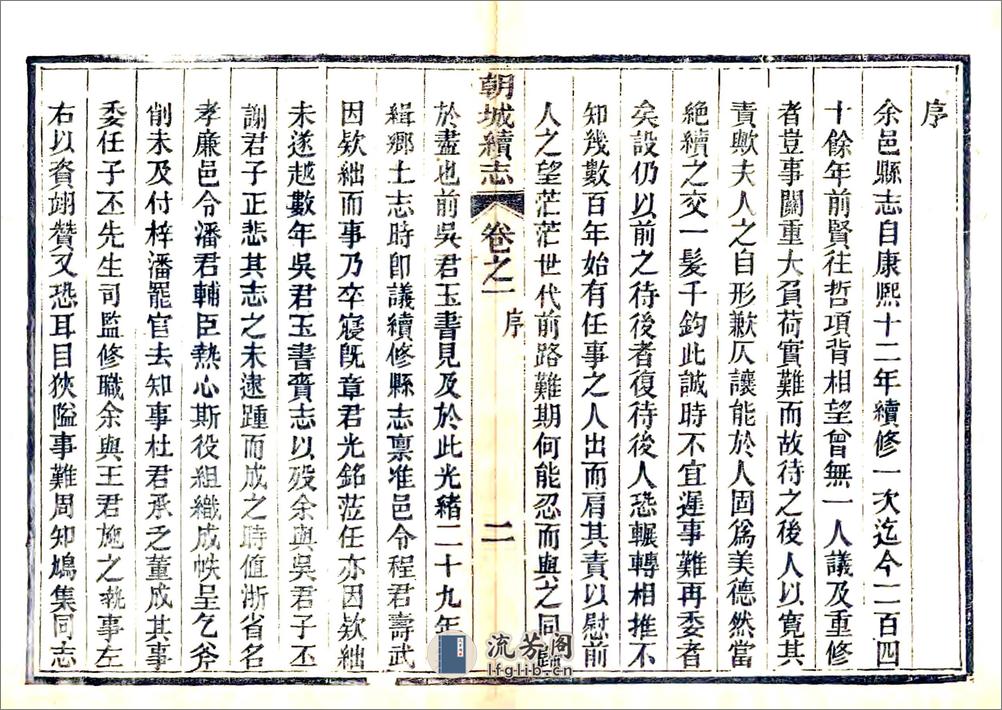 序
余邑縣志自康熙十二年續修一次迄今二百四
十餘年前賢往哲項背相望曾無一人議及重修
者豈事關重大負荷實難而故待之後人以寬其
責歟夫人之自形歉仄讓能於人固爲美德然當
絕續之交一髮千鈞此誠時不宜遲事難再委者
矣設仍以前之待後者復待後人恐輾轉相推不
知幾數百年始有任事之人出而肩其責以慰前
人之望茫茫世代前路難期何能忍而與之同歸
朝城續志 卷之一 序 二
於盡也前吳君玉書見及於此光緒二十九年
緝鄉土志時卽議續修縣志禀准邑令程君壽武
因欵絀而事乃卒寢旣章君光銘蒞任亦因欵絀
未遂越數年吳君玉書賫志以殁余與吳君子丕
謝君子正悲其志之未逮踵而成之時值浙省名
孝廉邑令潘君輔臣熱心斯役組織成帙呈乞斧
削未及付梓潘罷官去知事杜君承之董成其事
委任子丕先生司監修職余與王君施之執事左
右以資翊贊又恐耳目狹隘事難周知鳩集同志
流芳阁
lfglib.cn